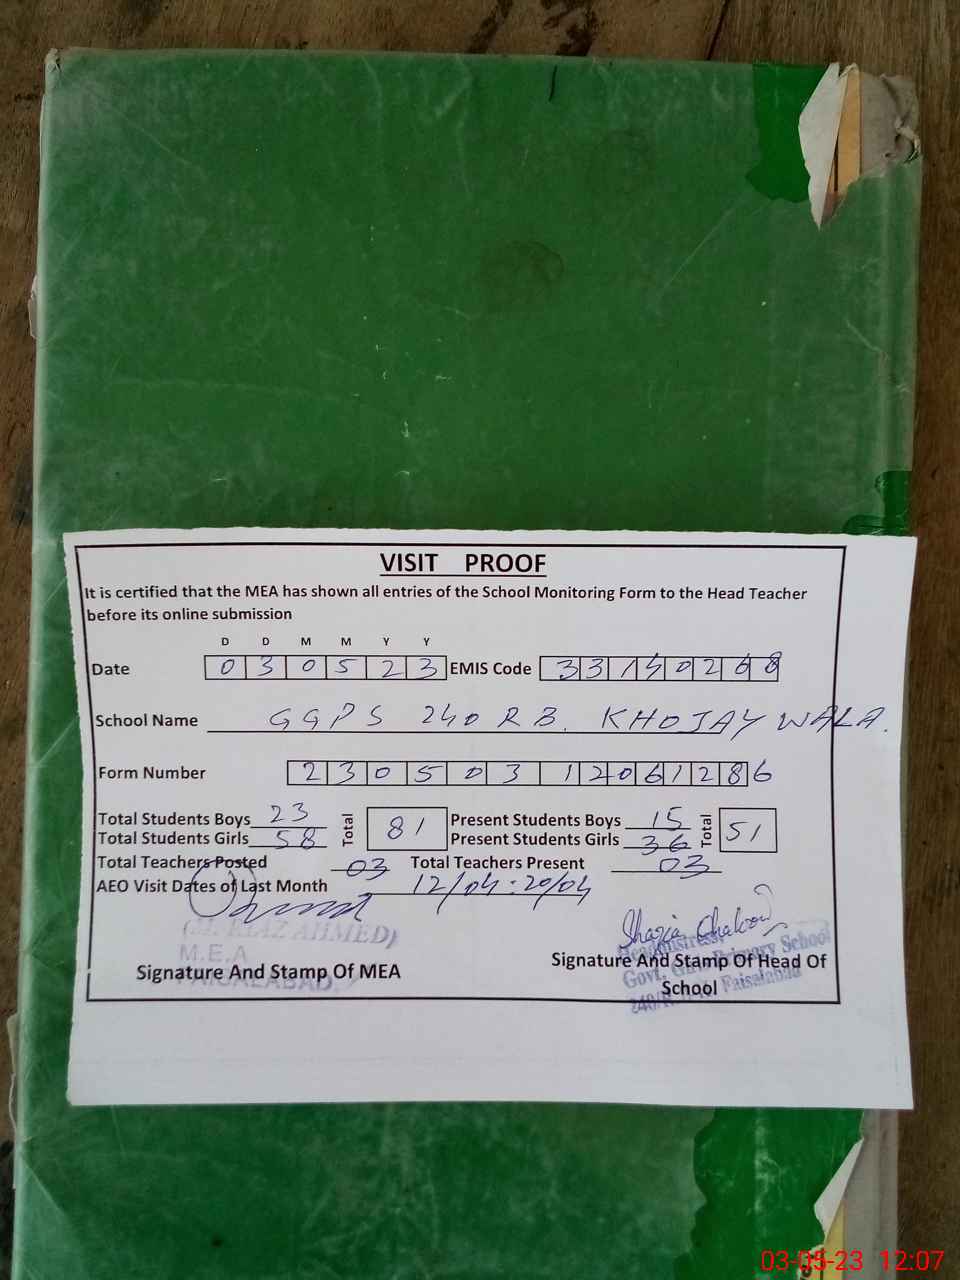 VISIT PROOF
It is certified that the MEA has shown all entries of the School Monitoring Form to the Head Teacher
before its online submission
D D M M Y Y
Date 0 3 0 5 2 3 EMIS Code 3 3 1 4 0 2 6 8
School Name GGPS 240 RB. KHOJAY WALA.
Form Number 2 3 0 5 0 3 1 2 0 6 1 2 8 6
Total Students Boys 23 Total 81 Present Students Boys 15 Total 51
Total Students Girls 58 Present Students Girls 36
Total Teachers Posted 03 Total Teachers Present 03
AEO Visit Dates of Last Month 12/04 : 20/04
(M. RIAZ AHMED)
M.E.A
FAISALABAD.
Signature And Stamp Of MEA
Shazia
Headmistress,
Govt. Girls Primary School
Faisalabad
Signature And Stamp Of Head Of
School
03-05-23 12:07